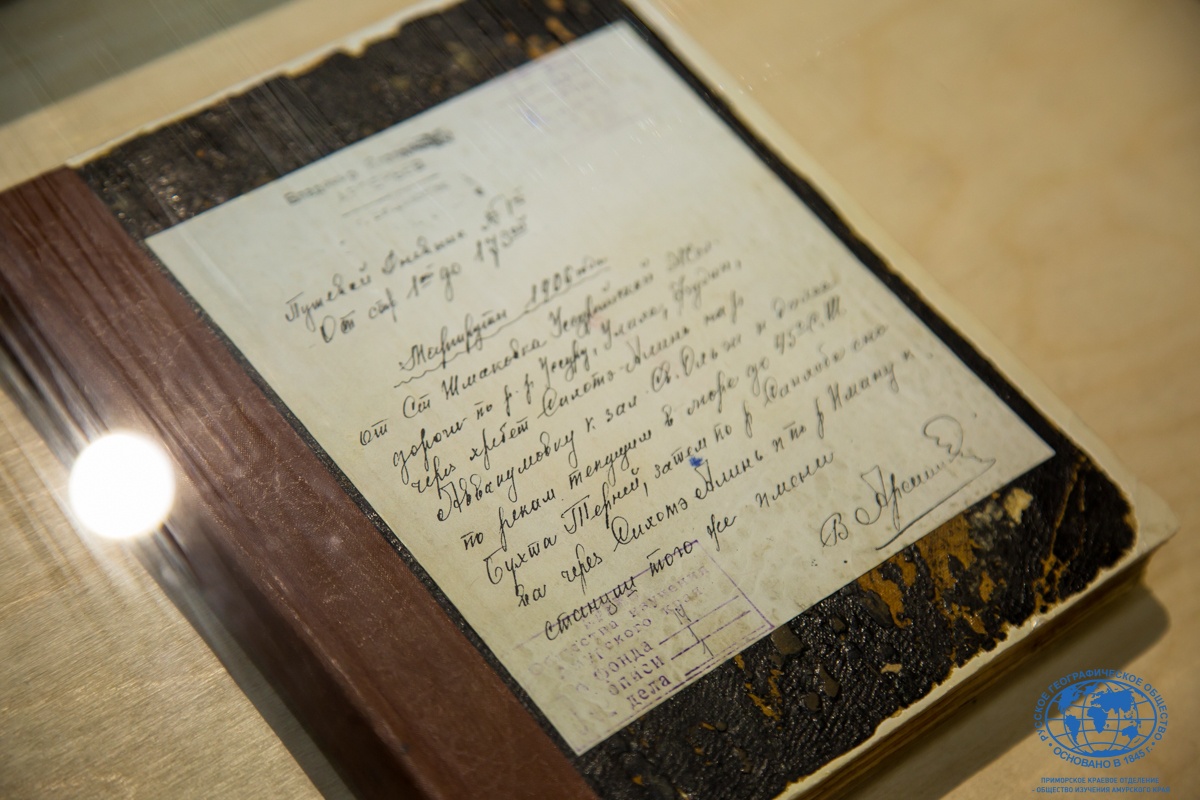 Владимир
Путевой Дневник № 1й
От стр 1й до 173й
Маршруты 1906 года
От Ст Шмаковка Уссурийской Жел.
дороги по р.р Уссури, Улахе, Фудзин,
через хребет Сихотэ-Алинь на р
Аввакумовку к зал. Св. Ольги и далее
по рекам текущим в море до 45° С. Ш
Бухта Терней, затем по р Санхобе сно
ва через Сихотэ Алинь и по р Иману к
станции того же имени
В Арсеньев
Общества изучения
Амурского
№ фонда
описи
дела
РУССКОЕ ГЕОГРАФИЧЕСКОЕ ОБЩЕСТВО
• ОСНОВАНО В 1845 г. •
ПРИМОРСКОЕ КРАЕВОЕ ОТДЕЛЕНИЕ
- ОБЩЕСТВО ИЗУЧЕНИЯ АМУРСКОГО КРАЯ